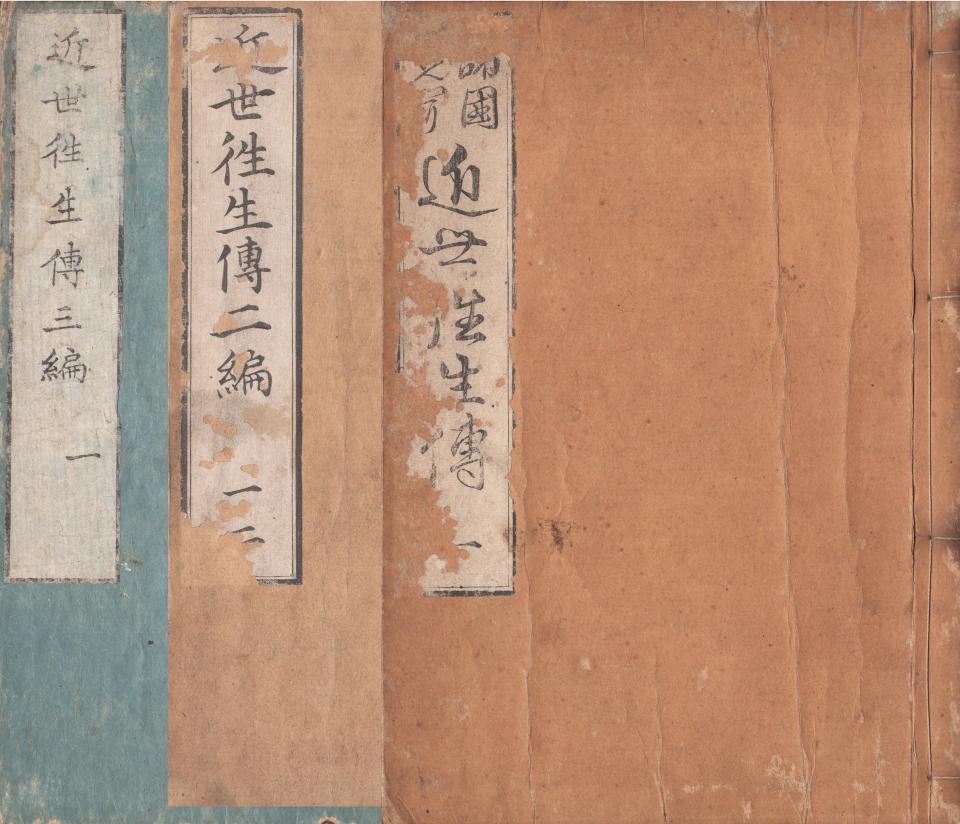 國
近世徃生傳 一
近世徃生傳二編 一二
近世徃生傳三編 一